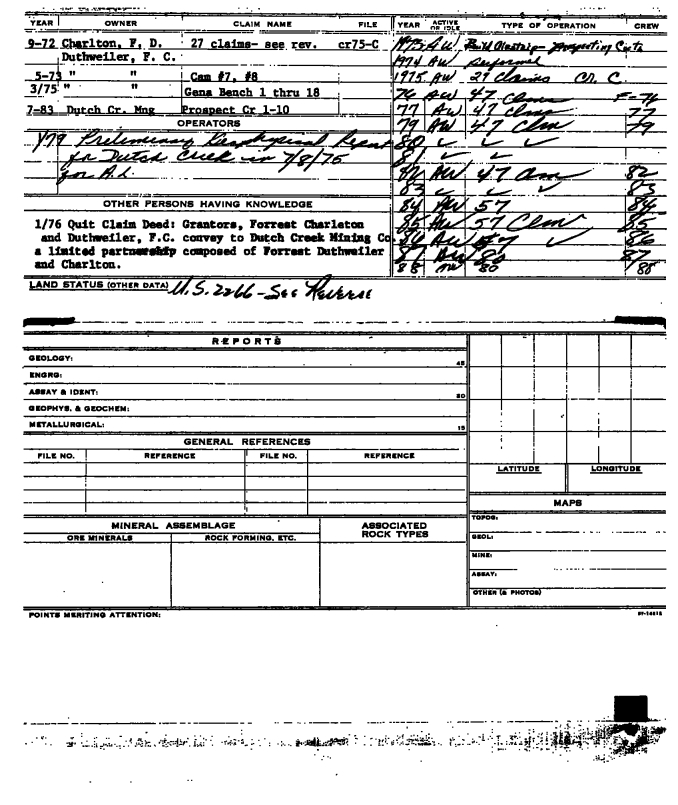 YEAR OWNER CLAIM NAME FILE
9-72 Charlton, F. D. 27 claims- see rev. cr75-C
Duthweiler, F. C.
5-73 " " Cam #7, #8
3/75 " " Gena Bench 1 thru 18
7-83 Dutch Cr. Mng Prospect Cr 1-10
OPERATORS
1/79 Preliminary Geophysical Report
for Dutch Creek in 7/8/75
for A.L.
OTHER PERSONS HAVING KNOWLEDGE
1/76 Quit Claim Deed: Grantors, Forrest Charleton
and Duthweiler, F.C. convey to Dutch Creek Mining Co.
a limited partnership composed of Forrest Duthweiler
and Charlton.
LAND STATUS (OTHER DATA) U.S. 2266 - See Reverse
YEAR ACTIVE OR IDLE TYPE OF OPERATION CREW
1973 AW Build Prospecting Cuts
1974 AW
1975 AW 27 Claims Cr. C
76 AW 47 Claims F-76
77 AW 47 Clms 77
79 AW 47 Clm 79
80 ✓ ✓ ✓
81 ✓ ✓
82 AW 47 Clm 82
83 ✓ ✓ ✓ 83
84 AW 57 84
85 AW 57 Clm 85
86 AW 57 ✓ 86
87 AW 80 87
88 80 /88
REPORTS
GEOLOGY: 45
ENGRG:
ASSAY & IDENT: 30
GEOPHYS. & GEOCHEM:
METALLURGICAL: 15
GENERAL REFERENCES
FILE NO. REFERENCE FILE NO. REFERENCE
MINERAL ASSEMBLAGE
ORE MINERALS ROCK FORMING, ETC.
ASSOCIATED
ROCK TYPES
LATITUDE LONGITUDE
MAPS
TOPOG:
GEOL:
MINE:
ASSAY:
OTHER (& PHOTOS)
POINTS MERITING ATTENTION: